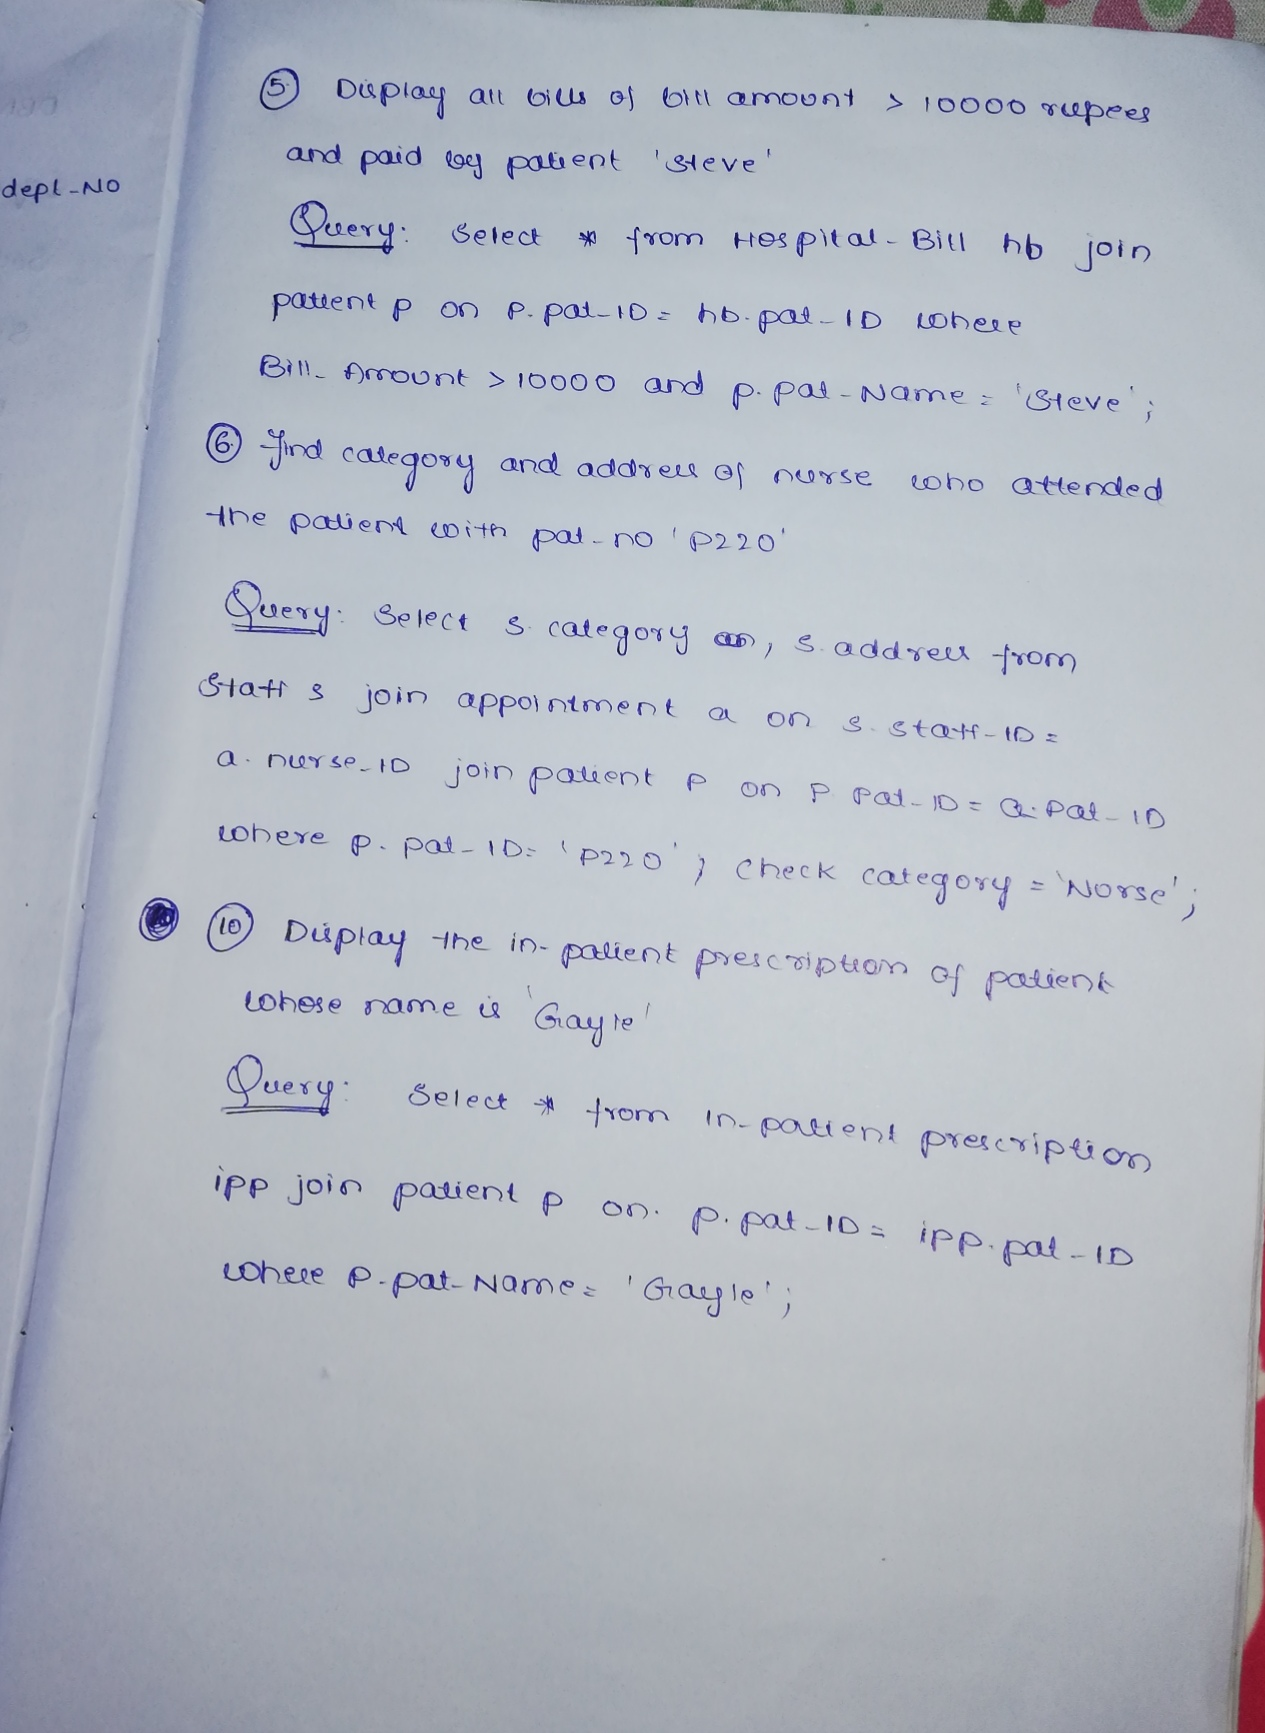 dept-NO
5. Display all bills of bill amount > 10000 rupees
and paid by patient 'Steve'
Query: Select * from Hospital-Bill hb join
patient p on p.pat-ID = hb.pat-ID where
Bill-Amount > 10000 and p.pat-Name = 'Steve';
6. Find category and address of nurse who attended
the patient with pat-no 'P220'
Query: Select s.category, s.address from
Staff s join appointment a on s.staff-ID =
a.nurse-ID join patient p on p.pat-ID = a.pat-ID
where p.pat-ID = 'P220'; check category = 'Norse';
10 Display the in-patient prescription of patient
whose name is 'Gayle'
Query: Select * from in-patient prescription
ipp join patient p on. p.pat-ID = ipp.pat-ID
where p.pat-Name = 'Gayle';